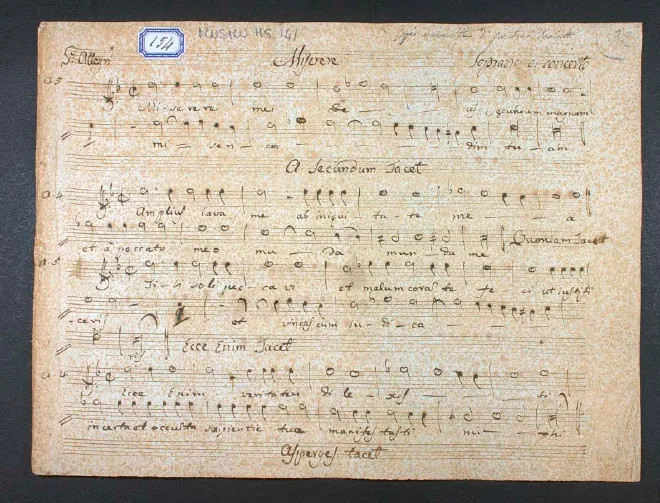 154 MUSICA HS 141
G. Allegri Miserere Soprano di concerto
a 5
Miserere mei De us secundum magnam
mi sericor diam tu am
A Secundum Tacet
a 4
Amplius lava me ab iniqui ta te me a
et a peccato meo mu Da mun da me Quoniam Tacet
a 5
Ti bi soli pec ca vi et malum coram te te ci ut iustifi
ceris et vincas cum iu di ca
Ecce Enim Tacet
a 4
Ecce Enim veritatem di le xis ti
incerta et occulta sapientie tue manifes tasti mi hi
Asperges tacet